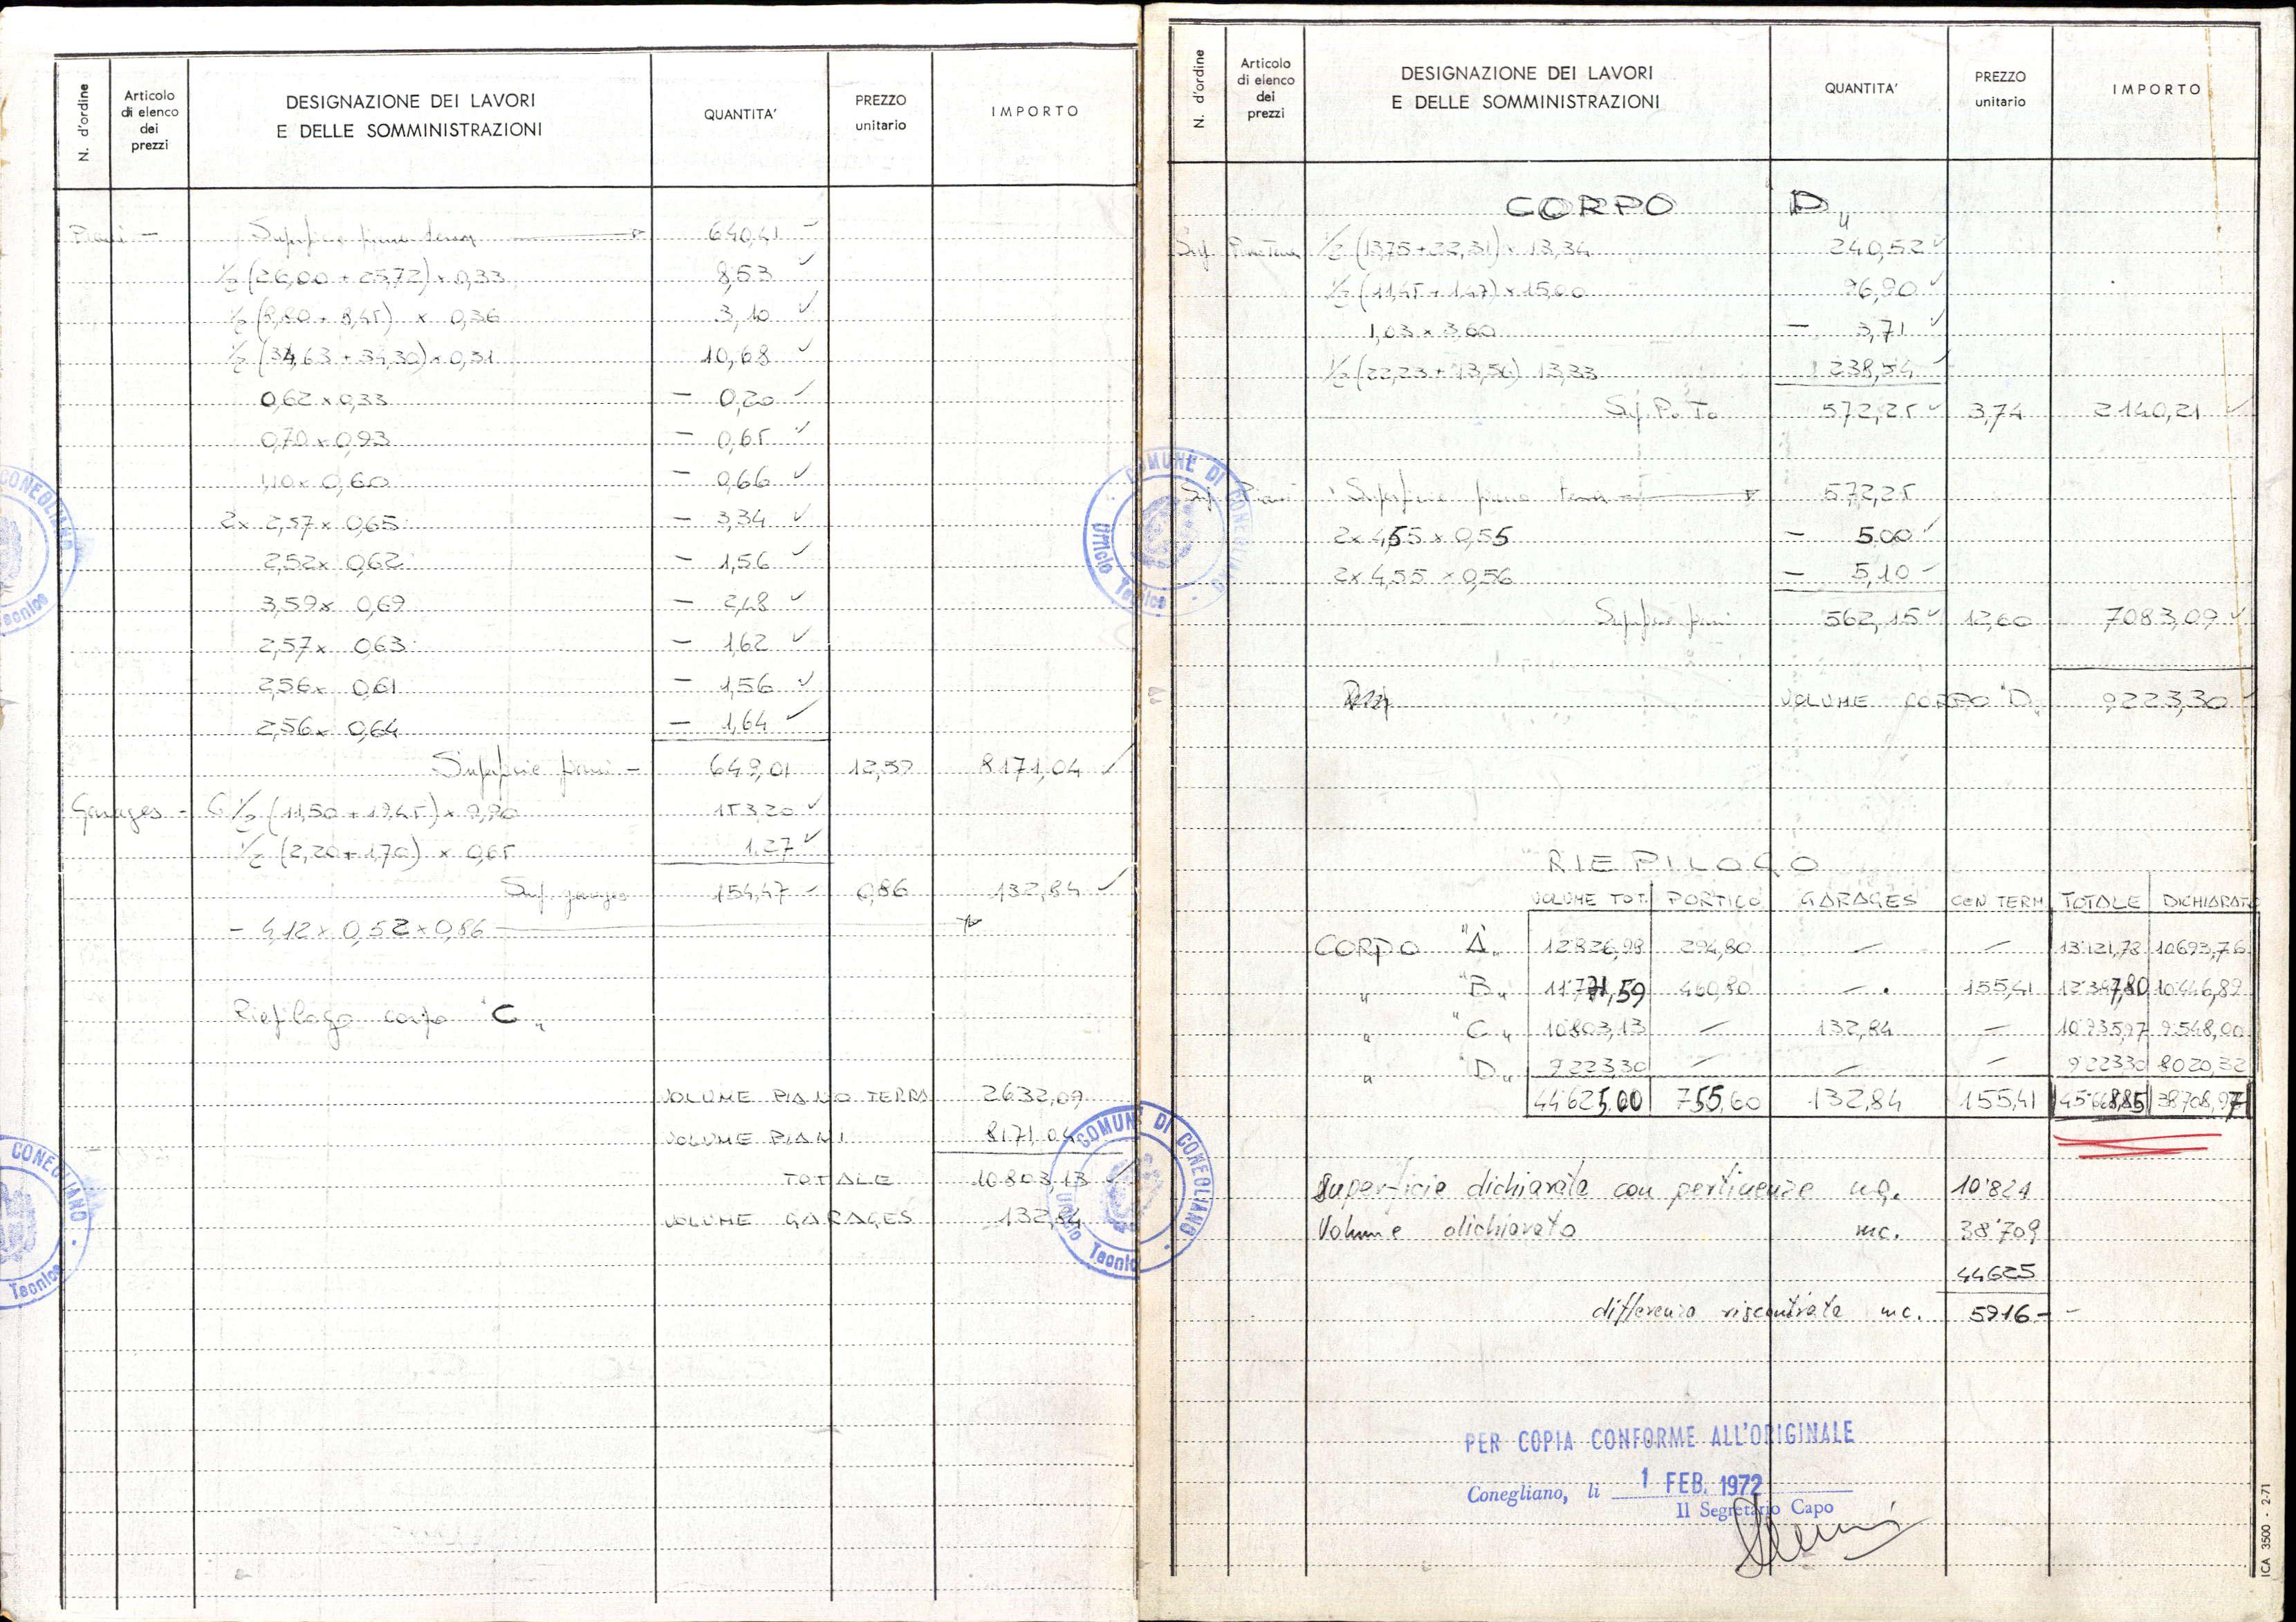 N. d'ordine
Articolo di elenco dei prezzi
DESIGNAZIONE DEI LAVORI E DELLE SOMMINISTRAZIONI
QUANTITA'
PREZZO unitario
IMPORTO
Piani - Superficie piano terra 640,41
½ (26,00 + 25,72) x 0,33 8,53
½ (8,80 + 8,45) x 0,36 3,10
½ (34,63 + 34,30) x 0,31 10,68
0,62 x 0,33 - 0,20
0,70 x 0,93 - 0,65
1,10 x 0,60 - 0,66
2x 2,57 x 0,65 - 3,34
2,52 x 0,62 - 1,56
3,59 x 0,69 - 2,48
2,57 x 0,63 - 1,62
2,56 x 0,61 - 1,56
2,56 x 0,64 - 1,64
Superficie piani - 649,01 12,59 8171,04
Garages - ½ (11,50 + 19,45) x 9,90 153,20
½ (2,20 + 1,70) x 0,65 1,27
Sup. garages 154,47 0,86 132,84
- 4,12 x 0,52 x 0,86
Riepilogo corpo "C"
VOLUME PIANO TERRA 2632,09
VOLUME PIANI 8171,04
TOTALE 10803,13
VOLUME GARAGES 132,84
COMUNE DI CONEGLIANO
Ufficio Tecnico
N. d'ordine
Articolo di elenco dei prezzi
DESIGNAZIONE DEI LAVORI E DELLE SOMMINISTRAZIONI
QUANTITA'
PREZZO unitario
IMPORTO
CORPO "D"
Sup. Piano Terra ½ (13,75 + 22,31) x 13,34 240,52
½ (11,45 + 1,47) x 15,00 96,90
1,03 x 3,60 - 3,71
½ (22,23 + 13,56) 13,33 238,54
Sup. P. T. 572,25 3,74 2140,21
Sup. Piani Superficie piano terra 572,25
2 x 4,55 x 0,55 - 5,00
2 x 4,55 x 0,56 - 5,10
Superficie piani 562,15 12,60 7083,09
VOLUME CORPO "D" 9223,30
RIEPILOGO
VOLUME TOT. PORTICO GARAGES CEN TERM TOTALE DICHIARATO
CORPO "A" 12'826,98 294,80 — — 13'121,78 10693,76
" "B" 11'771,59 460,80 — 155,41 12'387,80 10'446,89
" "C" 10'803,13 — 132,84 — 10'935,97 9'548,00
" "D" 9'223,30 — — — 9'223,30 8020,32
44'625,00 755,60 132,84 155,41 45'668,85 38'708,97
Superficie dichiarata con pertinenze mq. 10'824
Volume dichiarato mc. 38'709
44625
differenza riscontrata mc. 5916 -
PER COPIA CONFORME ALL'ORIGINALE
Conegliano, li 1 FEB. 1972
Il Segretario Capo
ICA 3500 - 2-71